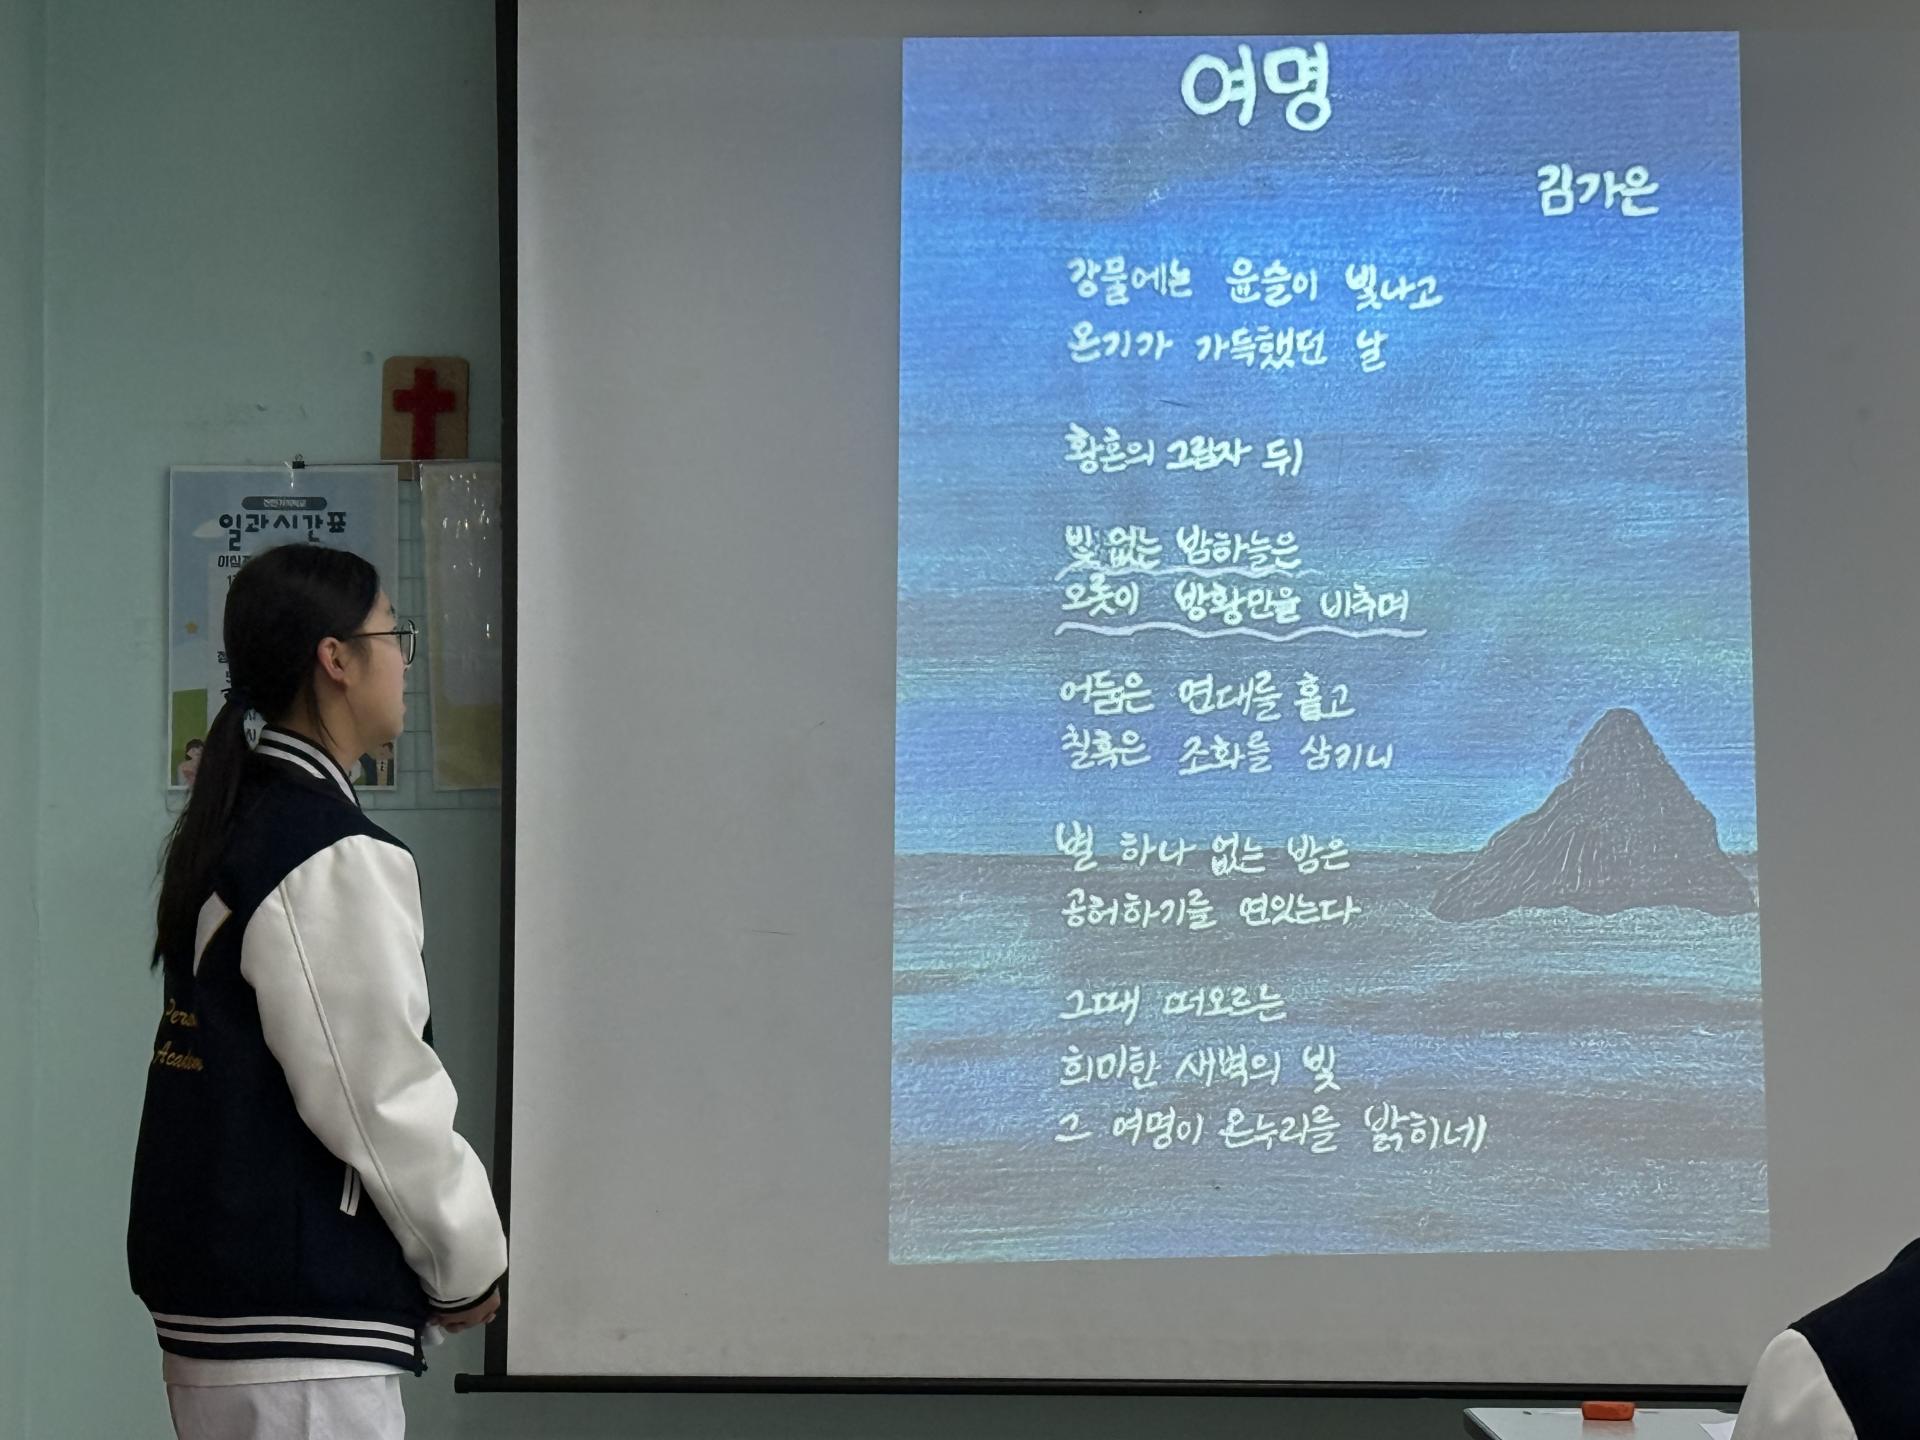 여명
김가은
강물에는 윤슬이 빛나고
온기가 가득했던 날
황혼의 그림자 뒤
빛 없는 밤하늘은
오롯이 방황만을 비추며
어둠은 연대를 훑고
칠흑은 조화를 삼키니
별 하나 없는 밤은
공허하기를 연잇는다
그때 떠오르는
희미한 새벽의 빛
그 여명이 온누리를 밝히네
일과시간표
Academ